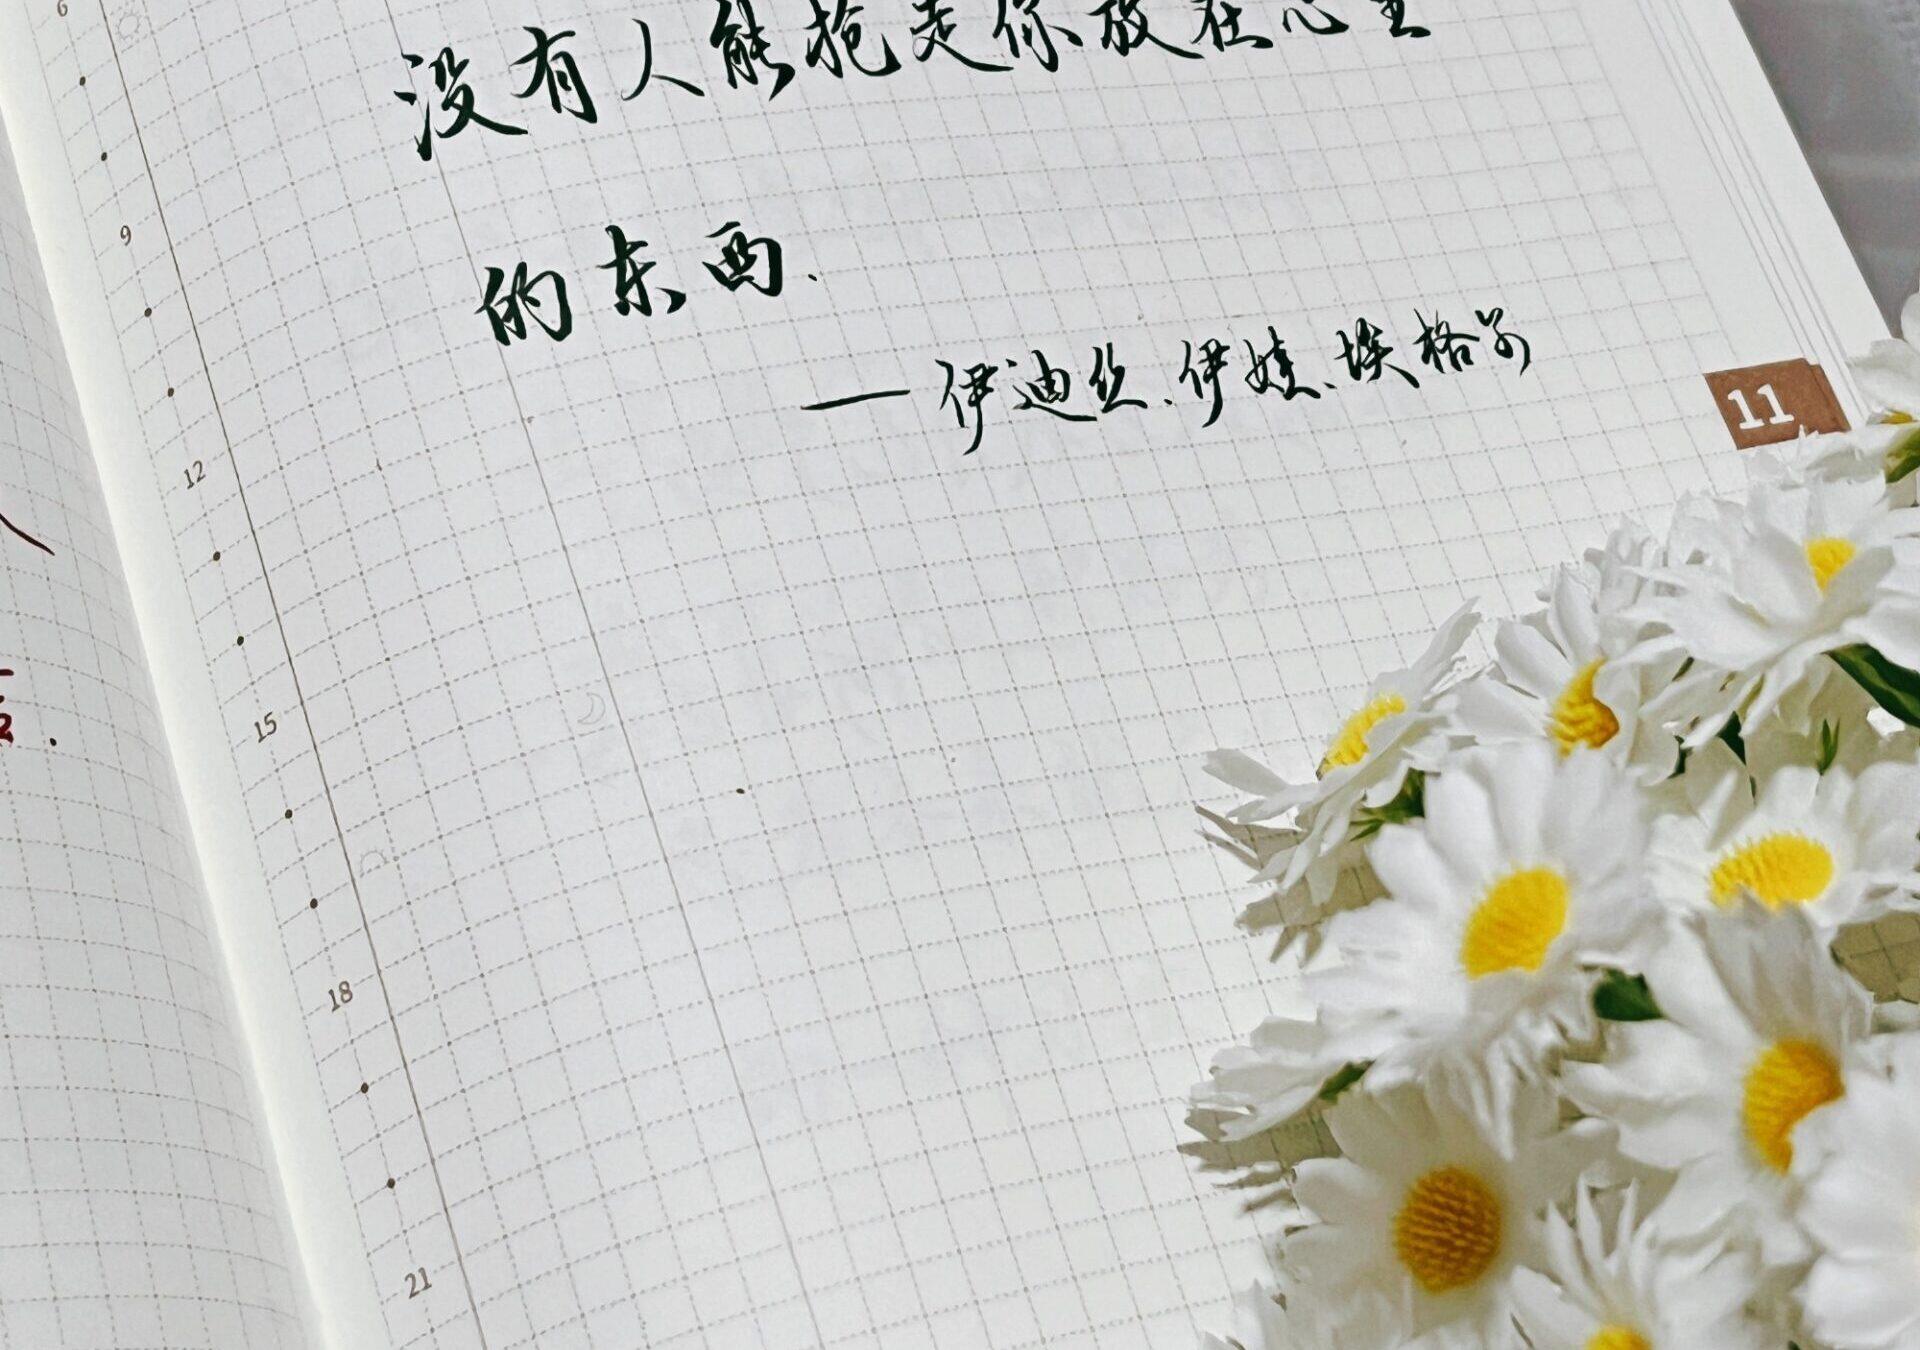 没有人能抢走你放在心里
的东西.
——伊迪丝.伊娃.埃格尔
11
6
9
12
15
18
21